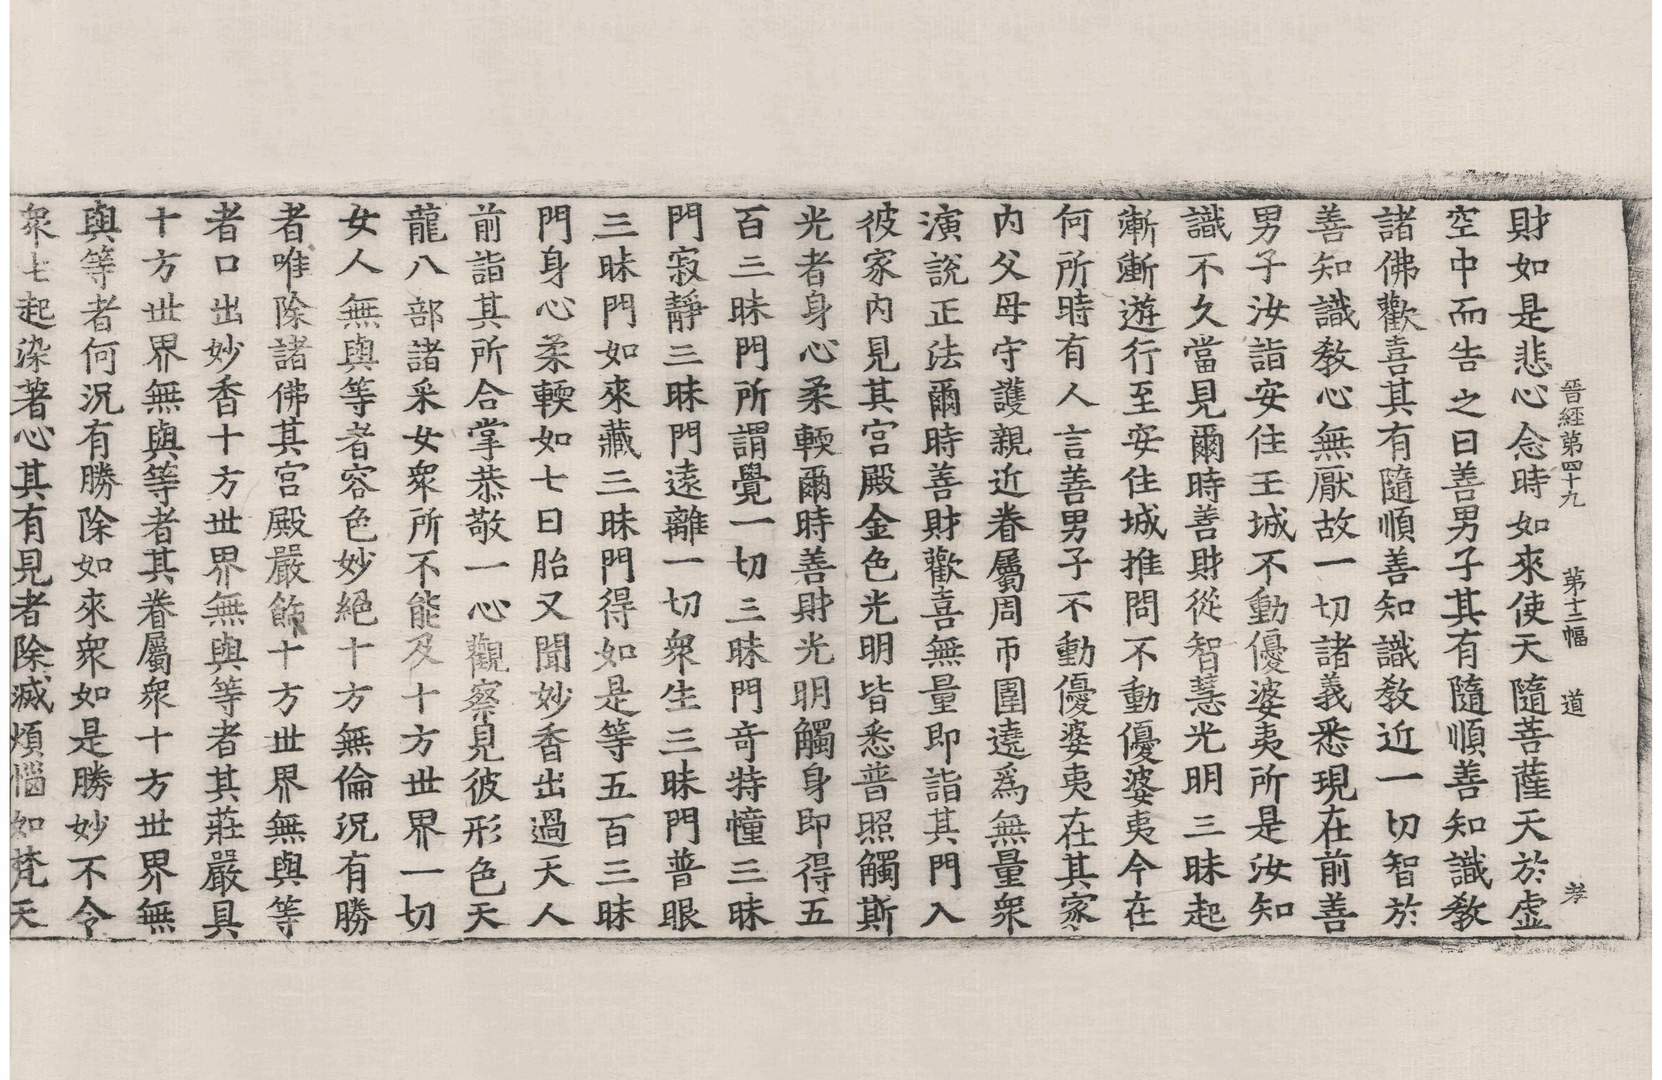 晉經第四十九　第十三幅　道　孝
財如是悲心念時如來使天隨菩薩天於虛
空中而告之曰善男子其有隨順善知識教
諸佛歡喜其有隨順善知識教近一切智於
善知識教心無厭故一切諸義悉現在前善
男子汝詣安住王城不動優婆夷所是汝知
識不久當見爾時善財從智慧光明三昧起
漸漸遊行至安住城推問不動優婆夷今在
何所時有人言善男子不動優婆夷在其家
內父母守護親近眷屬周帀圍遶爲無量衆
演說正法爾時善財歡喜無量即詣其門入
彼家內見其宮殿金色光明皆悉普照觸斯
光者身心柔輭爾時善財光明觸身即得五
百三昧門所謂覺一切三昧門竒特憧三昧
門寂靜三昧門遠離一切衆生三昧門普眼
三昧門如來藏三昧門得如是等五百三昧
門身心柔輭如七日胎又聞妙香出過天人
前詣其所合掌恭敬一心觀察見彼形色天
龍八部諸采女衆所不能及十方世界一切
女人無與等者容色妙絕十方無倫況有勝
者唯除諸佛其宮殿嚴飾十方世界無與等
者口出妙香十方世界無與等者其莊嚴具
十方世界無與等者其眷屬衆十方世界無
與等者何況有勝除如來衆如是勝妙不令
衆生起染著心其有見者除滅煩惱如梵天